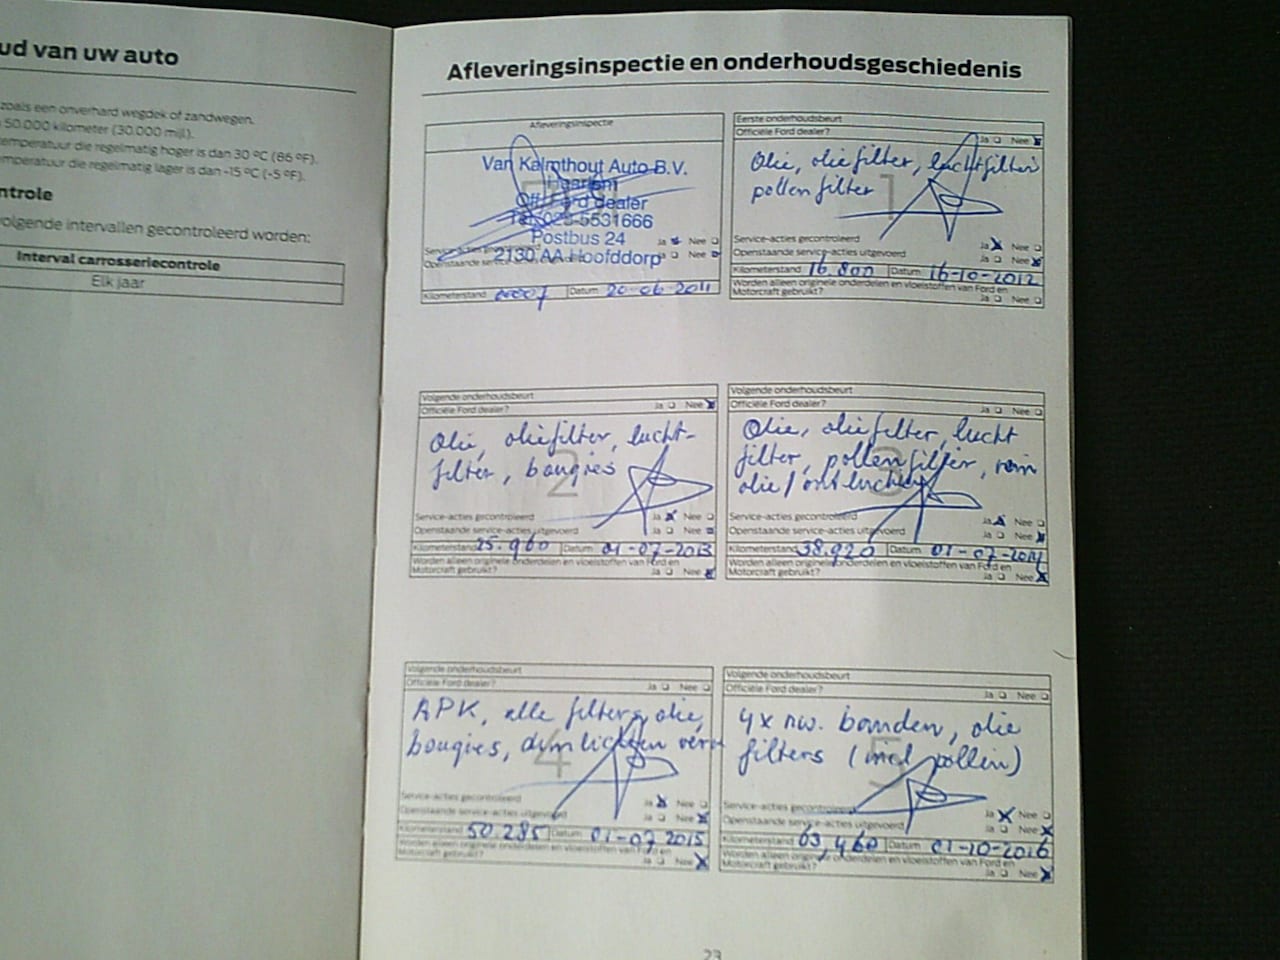 ud van uw auto
zoals een onverhard wegdek of zandwegen.
50.000 kilometer (30.000 mijl).
temperatuur die regelmatig hoger is dan 30 ºC (86 ºF).
mperatuur die regelmatig lager is dan -15 ºC (-5 ºF).
ntrole
volgende intervallen gecontroleerd worden:
Interval carrosseriecontrole
Elk jaar
Afleveringsinspectie en onderhoudsgeschiedenis
Afleveringsinspectie
Van Kalmthout Auto B.V.
Haarlem
Off. Ford dealer
Tel. 023-5531666
Postbus 24
2130 AA Hoofddorp
Ja Nee
Openstaande Ja Nee
Kilometerstand 00007 Datum 20-06-2011
Eerste onderhoudsbeurt
Officiële Ford dealer? Ja Nee
Olie, oliefilter, luchtfilter
pollenfilter
1
Service-acties gecontroleerd Ja Nee
Openstaande service-acties uitgevoerd Ja Nee
Kilometerstand 16.800 Datum 16-10-2012
Worden alleen originele onderdelen en vloeistoffen van Ford en
Motorcraft gebruikt? Ja Nee
Volgende onderhoudsbeurt
Officiële Ford dealer? Ja Nee
Olie, oliefilter, lucht-
filter, bougies
2
Service-acties gecontroleerd Ja Nee
Openstaande service-acties uitgevoerd Ja Nee
Kilometerstand 25.960 Datum 01-07-2013
Worden alleen originele onderdelen en vloeistoffen van Ford en
Motorcraft gebruikt? Ja Nee
Volgende onderhoudsbeurt
Officiële Ford dealer? Ja Nee
Olie, oliefilter, lucht
filter, pollenfilter, rem
olie/ontluchten
3
Service-acties gecontroleerd Ja Nee
Openstaande service-acties uitgevoerd Ja Nee
Kilometerstand 38.920 Datum 01-07-2014
Worden alleen originele onderdelen en vloeistoffen van Ford en
Motorcraft gebruikt? Ja Nee
Volgende onderhoudsbeurt
Officiële Ford dealer? Ja Nee
APK, alle filters, olie,
bougies, dimlichten
4
Service-acties gecontroleerd Ja Nee
Openstaande service-acties uitgevoerd Ja Nee
Kilometerstand 50.285 Datum 01-07-2015
Worden alleen originele onderdelen en vloeistoffen van Ford en
Motorcraft gebruikt? Ja Nee
Volgende onderhoudsbeurt
Officiële Ford dealer? Ja Nee
4x nw. banden, olie
filters (incl pollen)
5
Service-acties gecontroleerd Ja Nee
Openstaande service-acties uitgevoerd Ja Nee
Kilometerstand 63,460 Datum 01-10-2016
Worden alleen originele onderdelen en vloeistoffen van Ford en
Motorcraft gebruikt? Ja Nee
23